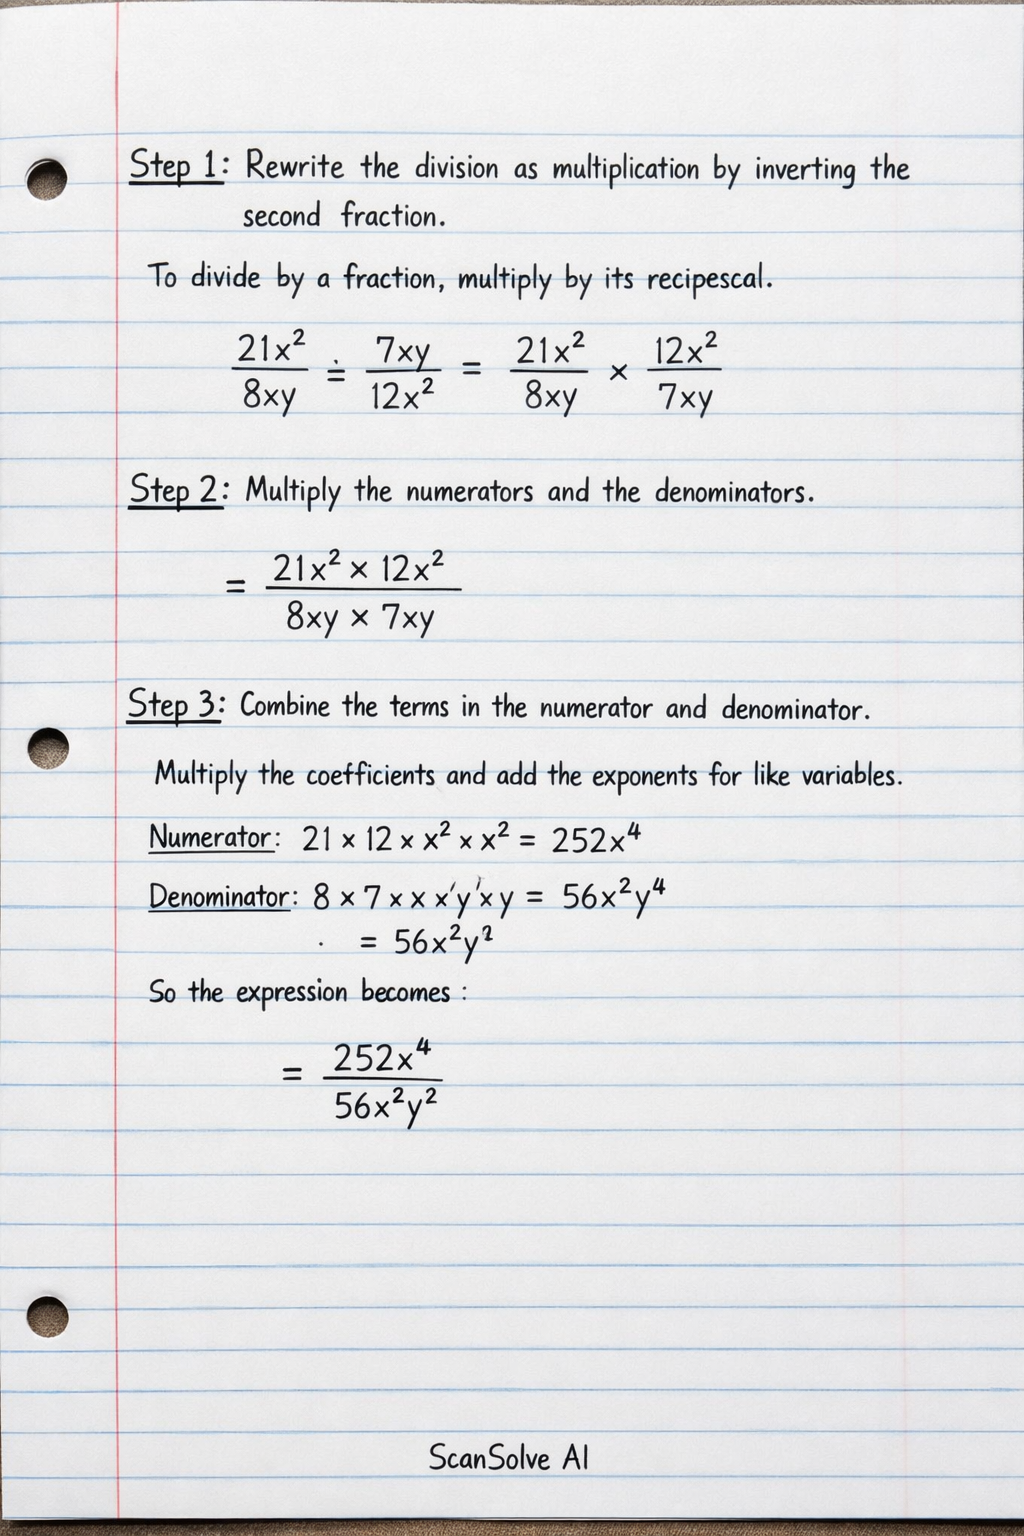 Step 1: Rewrite the division as multiplication by inverting the
second fraction.
To divide by a fraction, multiply by its recipescal.
21x²/8xy ÷ 7xy/12x² = 21x²/8xy × 12x²/7xy
Step 2: Multiply the numerators and the denominators.
= 21x² × 12x² / 8xy × 7xy
Step 3: Combine the terms in the numerator and denominator.
Multiply the coefficients and add the exponents for like variables.
Numerator: 21 × 12 × x² × x² = 252x⁴
Denominator: 8 × 7 × x x'y'xy = 56x²y⁴
= 56x²y²
So the expression becomes :
= 252x⁴/56x²y²
ScanSolve AI